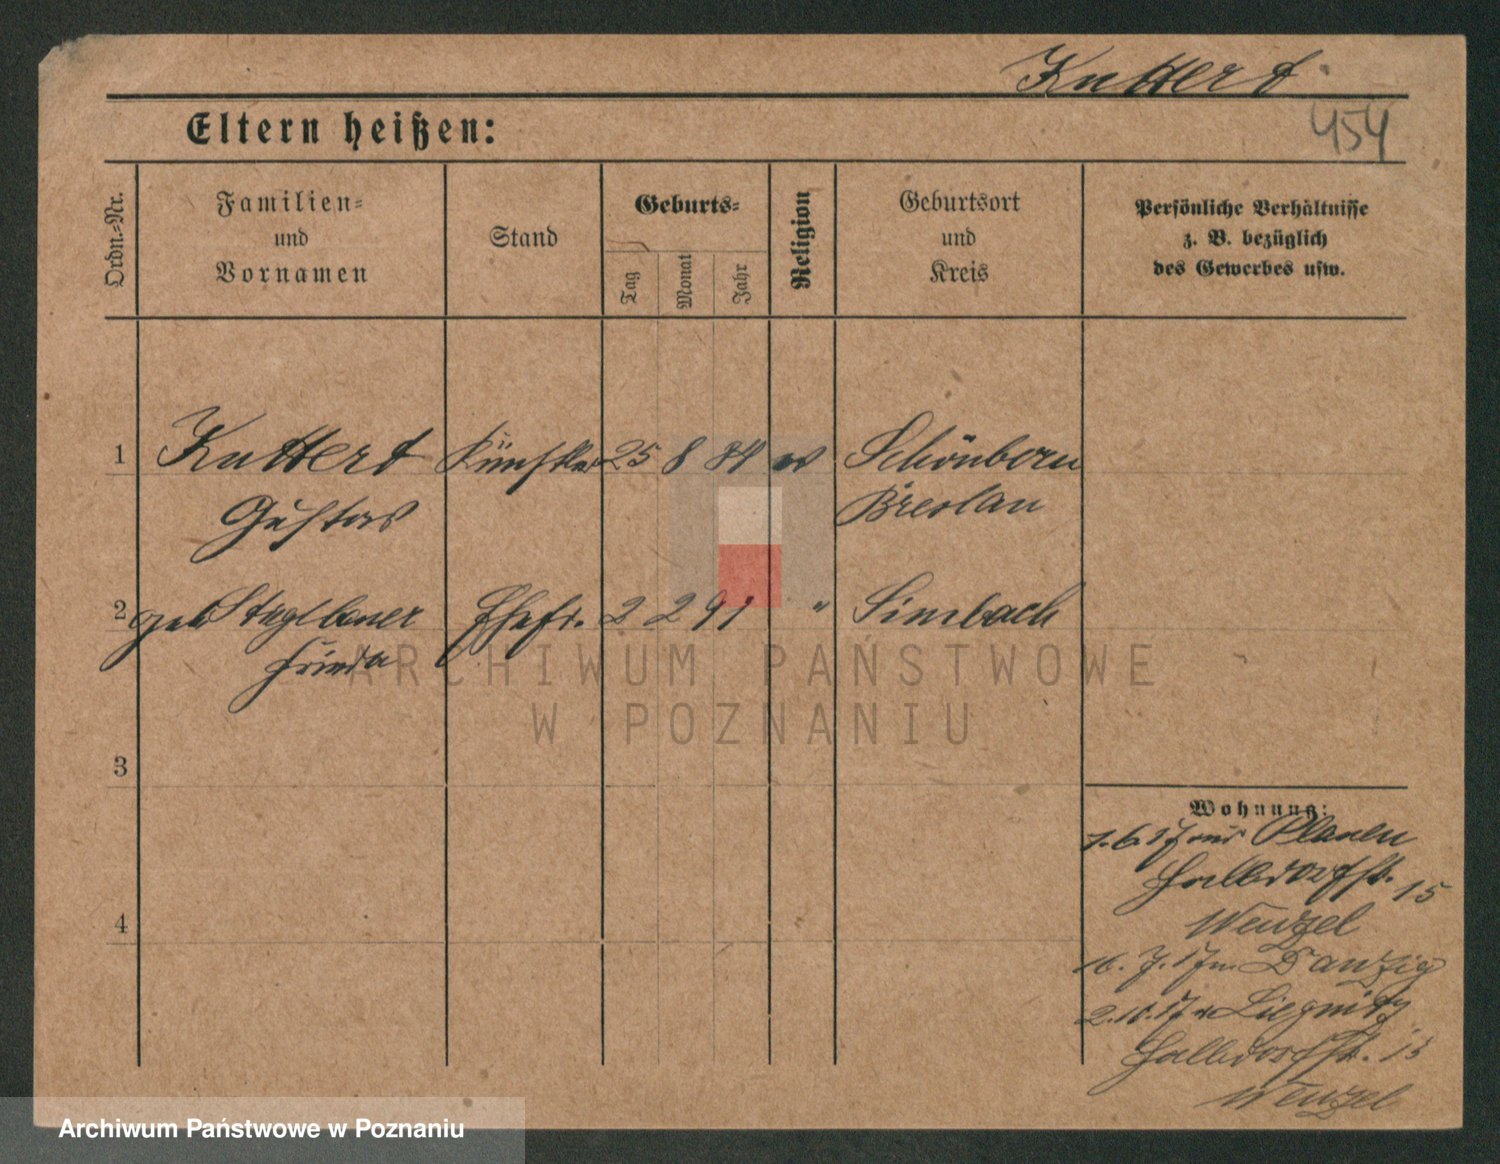 Kuttert
454
Eltern heißen:
Ordn.-Nr.
Familien-
und
Vornamen
Stand
Geburts-
Tag
Monat
Jahr
Religion
Geburtsort
und
Kreis
Persönliche Verhältnisse
z. B. bezüglich
des Gewerbes usw.
1 Kuttert Künstler 25 8 84 ev Schönborn
Gustav Breslau
2 geb Ehefr. 2 2 91 " Simbach
Frieda
3
4
Wohnung:
7.6.17 aus Plauen
Halbdorfst. 15
Wenzel
16.7.17 n. Danzig
2.10.17 v Liegnitz
Halbdorfst. 15
Wenzel
ARCHIWUM PAŃSTWOWE
W POZNANIU
Archiwum Państwowe w Poznaniu